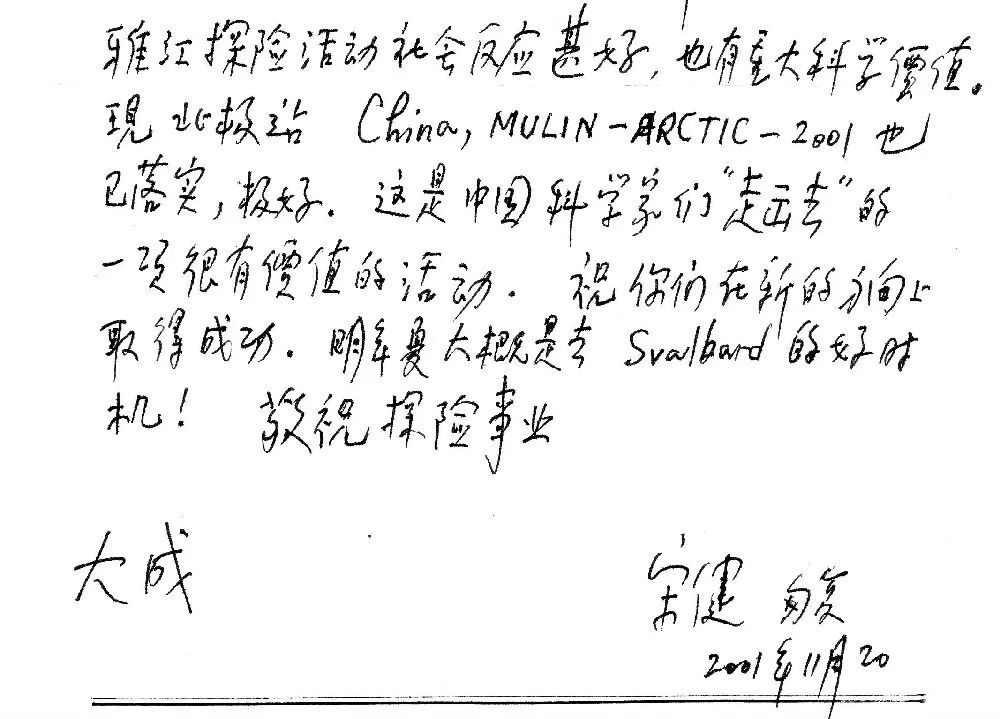 雅江探险活动社会反应甚好，也有重大科学價值。
現北极站 China, MULIN-ARCTIC-2001 也
已落实，极好。这是中国科学家们“走出去”的
一项很有價值的活动。祝你们在新的方向上
取得成功。明年夏大概是去 Svalbard 的好时
机！ 敬祝探险事业
大成
宋健
2001年11月20